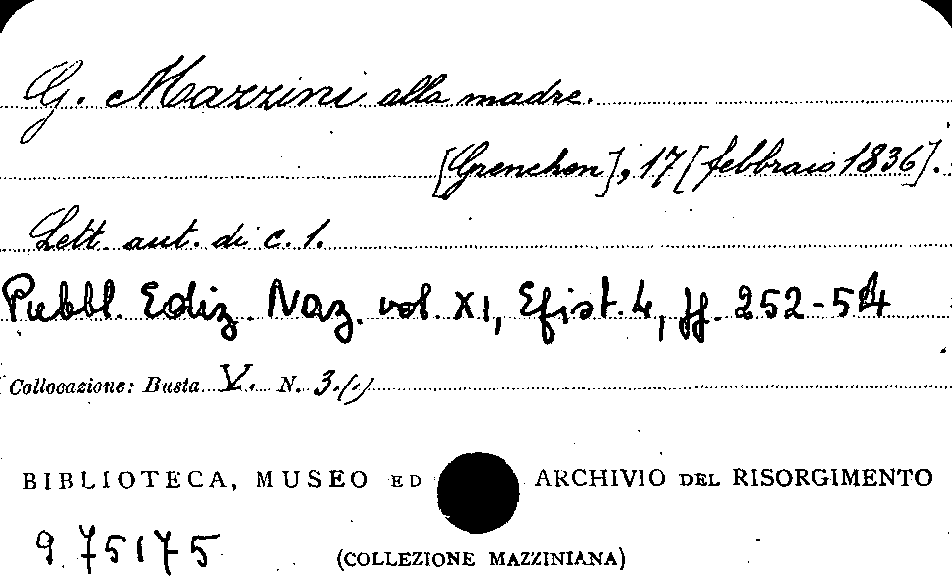 G. Mazzini alla madre.
[Grenchen], 17 [febbraio 1836].
Lett. aut. di c. 1.
Pubbl. Ediz. Naz. vol. XI, Epist. 4, pp. 252-54
Collocazione: Busta V. N. 3.(1)
BIBLIOTECA, MUSEO ED ARCHIVIO DEL RISORGIMENTO
9 75175
(COLLEZIONE MAZZINIANA)